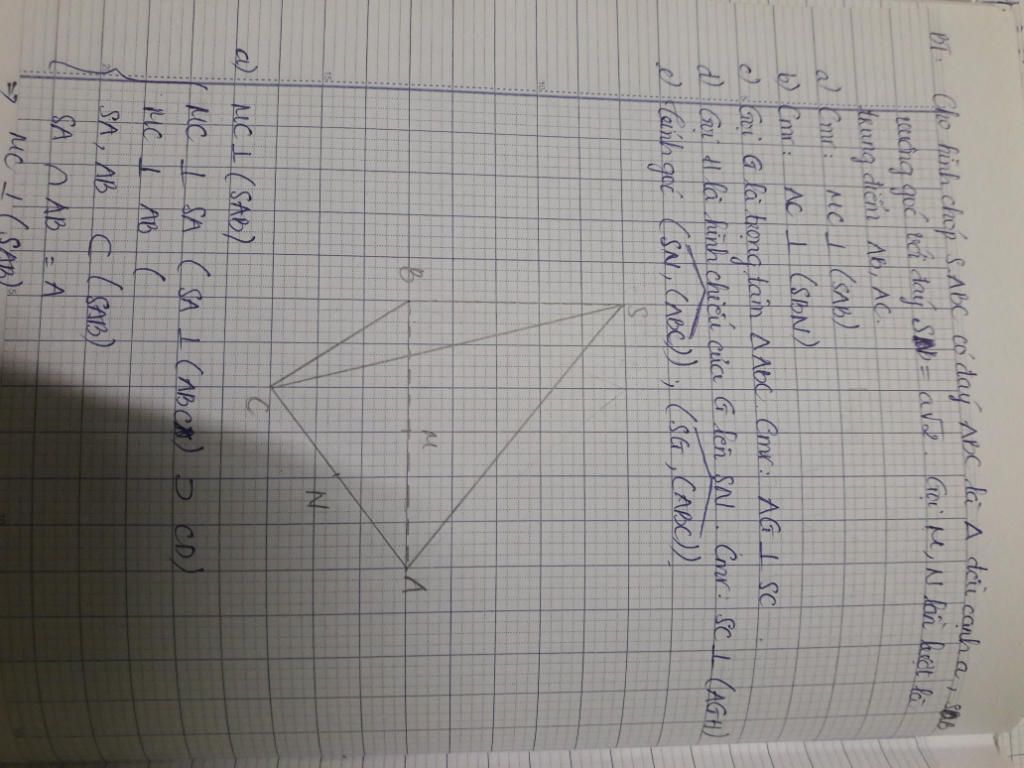 BT: Cho hình chóp S.ABC có đáy ABC là Δ đều cạnh a, SB
vuông góc với đáy SB = a√2. Gọi M, N lần lượt là
trung điểm AB, AC.
a) Cmr: MC ⊥ (SAB)
b) Cmr: AC ⊥ (SBN)
c) Gọi G là trọng tâm ΔABC. Cmr: AG ⊥ SC.
d) Gọi H là hình chiếu của G lên SN. Cmr: SC ⊥ (AGH)
e) Tính góc (SN, (ABC)); (SG, (ABC)).
S
B
M
A
C
N
a) MC ⊥ (SAB)
MC ⊥ SA (SA ⊥ (ABC) ⊃ CD)
MC ⊥ AB (
SA, AB ⊂ (SAB)
SA ∩ AB = A
=> MC ⊥ (SAB)